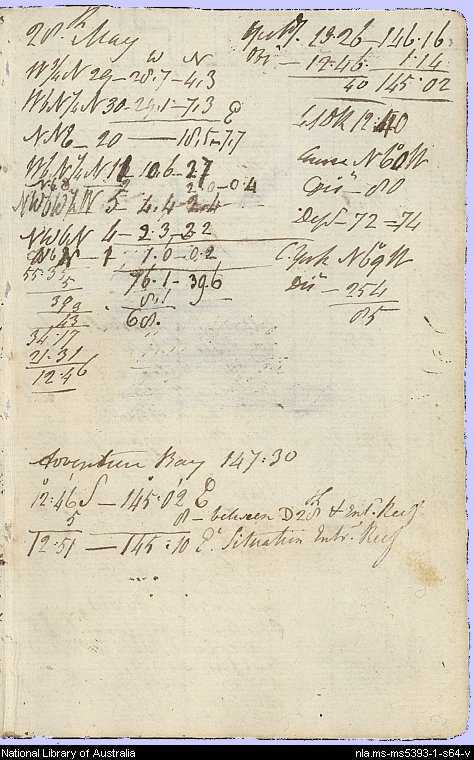 28th May
W N
W¾N 29 – 28.7 – 4.3
WbN¾N 30 – 29.1 – 7.3 E
NNE – 20 — 18.5 – 7.7
WbN½N 11 10.6 – 2.7
NbE 2 2.0 – 0.4
NWbW½W 5 4.4 2.4
NWbN 4 – 2.3, 2.2
N – 1 1.0 – 0.2
55.35
5
76.1 – 39.6
8.1
68.
393
43
34.17
21.31
12.46
13.26 – 146.16
12.46 1.14
40 145.02
12.40
Course N60W
Dis – 80
Dep – 72 = 74
N69W
Dis – 254
85
Adventure Bay 147:30
12:46 S – 145:02 E
5 8 – between D 28th & Entr. Reef
12:51 – 145:10 E. Situation Entr. Reef
National Library of Australia
nla.ms-ms5393-1-s64-v